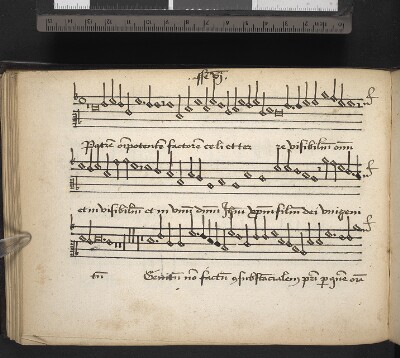 Patrē om̄ipotentē factorē celi et ter re visibiliū om̄i
et in visibiliū et in vnū dn̄m Jhm̄ xp̄m filiū dei vnigeni
tū Genitū nō factū ꝯsubstācialem pr̄i p quē om̄